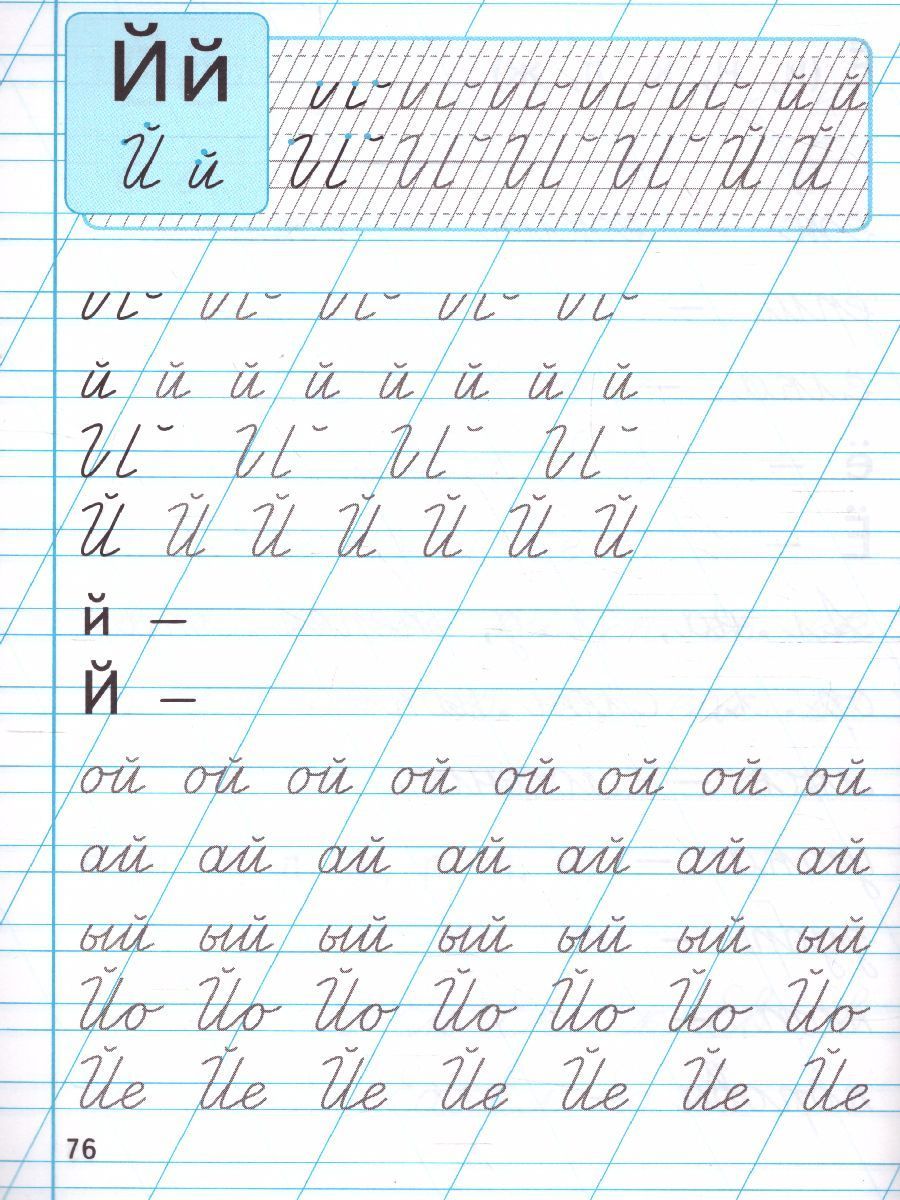 Йй
Й й
й й
Й Й
й й й й й й й й
Й Й Й Й Й Й Й
й —
Й —
ой ой ой ой ой ой ой ой
ай ай ай ай ай ай ай
ый ый ый ый ый ый ый
Йо Йо Йо Йо Йо Йо Йо
Йе Йе Йе Йе Йе Йе Йе
76